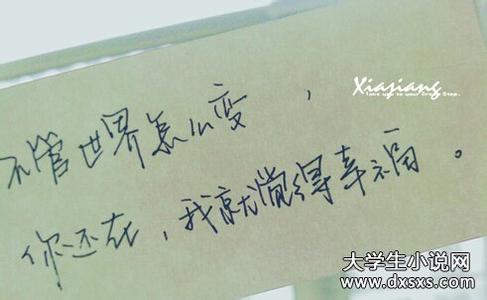 Xiajiang
不管世界怎么变，
你还在，我就觉得幸福。
大学生小说网
www.dxsxs.com